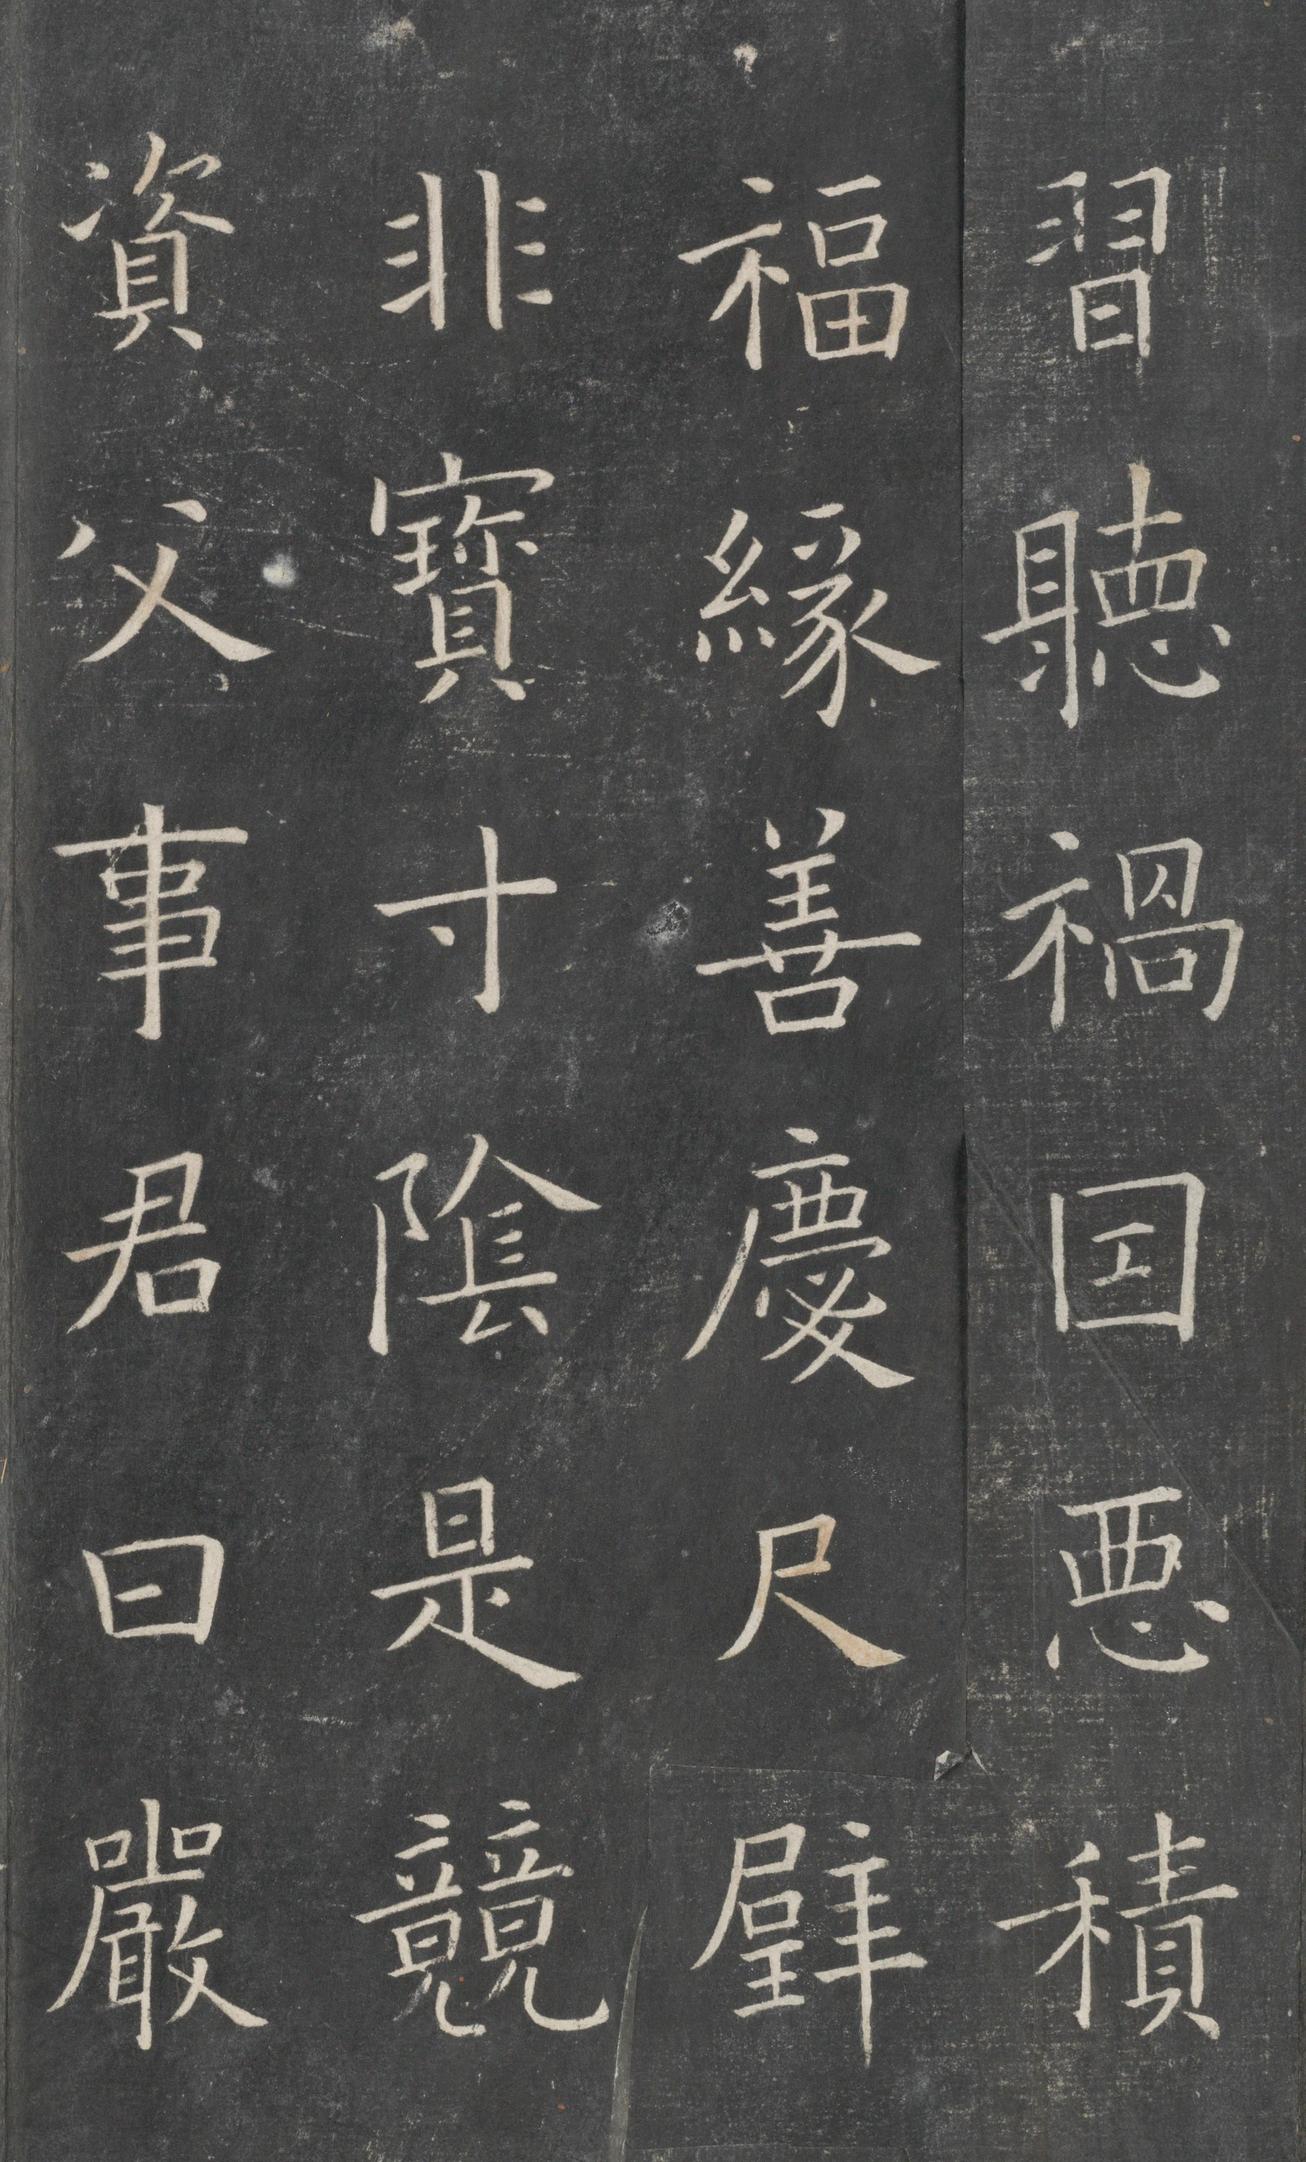 習聽禍因悪積
福緣善慶尺璧
非寶寸陰是競
資父事君曰嚴